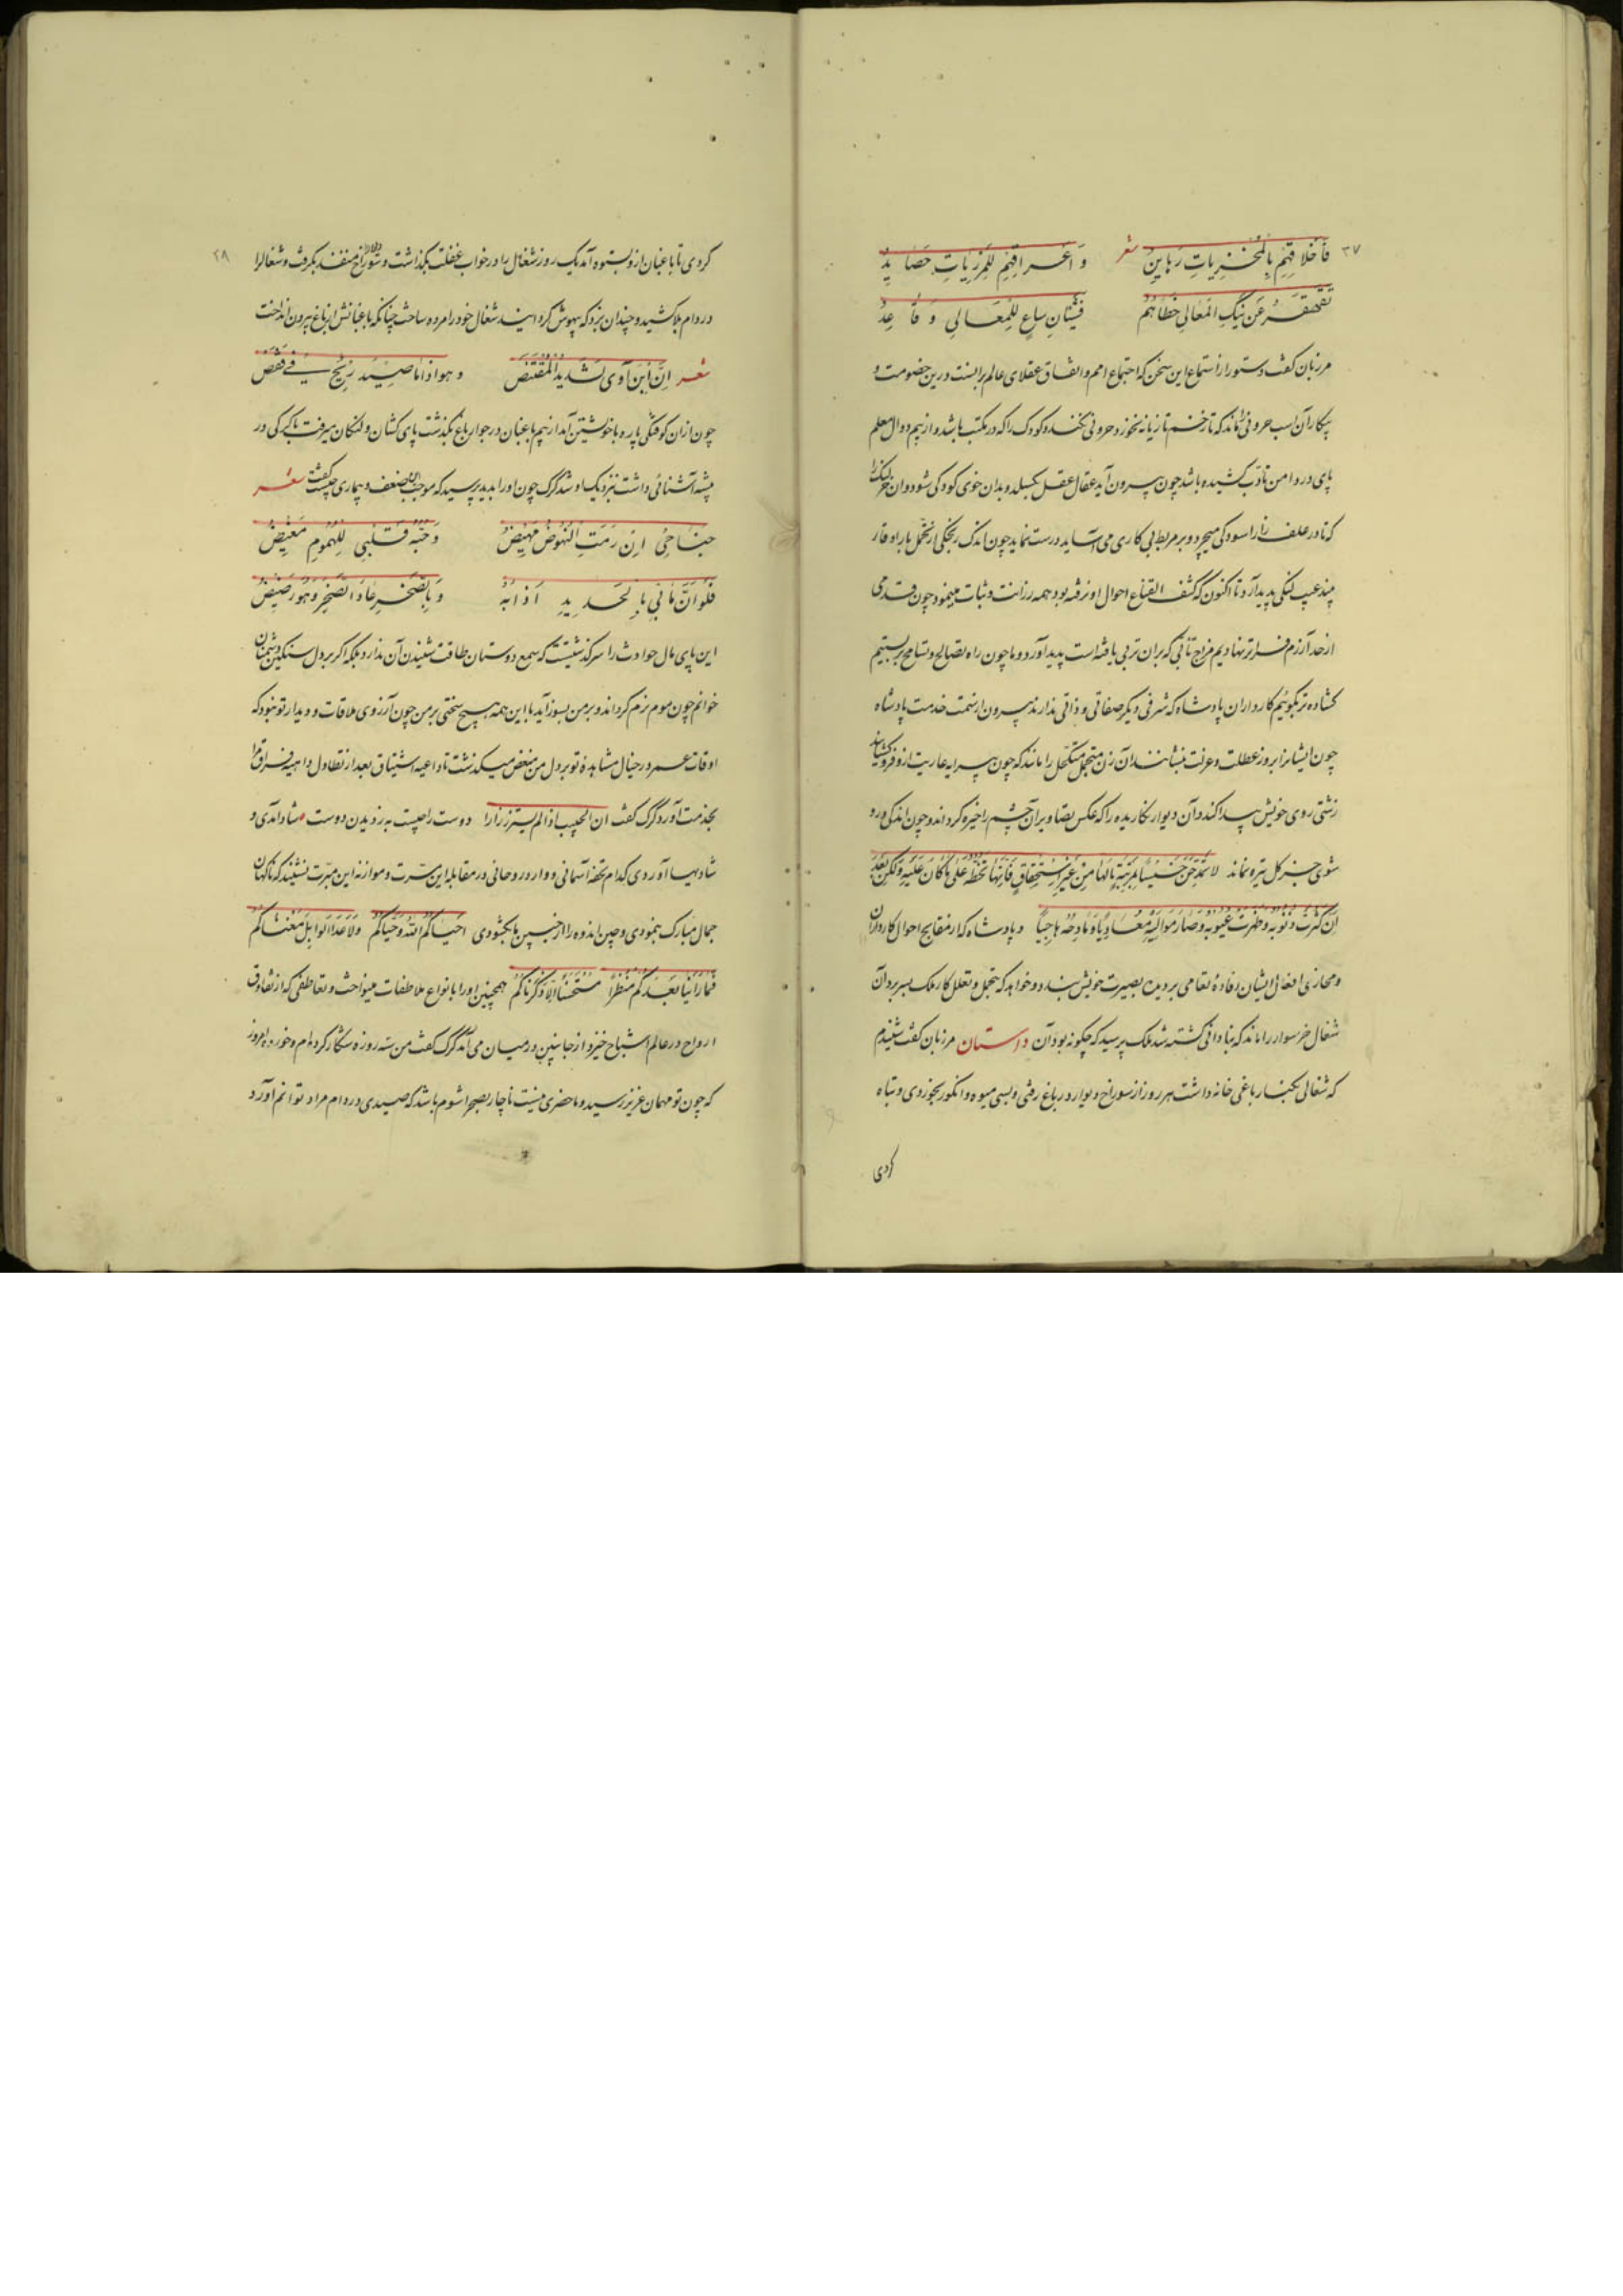 ۳۷
فاخلاقهم بالمخزیات رهاین شعر واعراقهم للمزریات حصاید
تقهقر عن نیل المعالی خطاهم فشتان ساع للمعالی وقاعد
مرزبان کفت دستور را از استماع این سخن که اجتماع امم و اتفاق عقلای عالم برا بنست درین خصومت و
پیکار آن اسب حرون را ماند که تا زخم تازیانه نخورد حرونی نکند و کودک را که در مکتب باشد و از بیم دوال معلم
پای در دامن تادب کشیده باشد چون بیرون آید عقال عقل بکسلد و بدان خوی کودکی شود و ان خر لنک را
که تا در علفزار آسودکی میچرد و بر مربط بی کاری می آساید درست نماید چون اندک رنجکی از تحمل بار اوقار
بیند عیب لنکی پدید آرد تا اکنون که کشف القناع احوال او نرفته بود همه رزانت و ثبات مینمود چون قدمی
از حد آزرم فراتر نهادیم مزاج تانی که بران تربی یافته است پدید آورد و ما چون راه تصالح و تسامح بربستیم
کشاده تر بکوئیم کارداران پادشاه که شرفی دیکر صفاتی و ذاتی ندارند بیرون از سمت خدمت پادشاه
چون ایشانرا بروز عطلت و عزلت بنشانند آن زن متجمل متکحل را مانند که چون پیرایه عاریت ازو فرو کشایند
زشتی روی خویش پیدا کند و آن دیوار نکاریده را که عکس تصاویر آن چشم را خیره کرداند و چون اندکی فرو
شوی جز کل تیره نماند لا تمدحن خسیسا بمرتبة نالها من غیر استحقاق فانها تحطه علی ما کان علیه ولکن بعد
ان کثرت ذنوبه و ظهرت عیوبه و صار موالیه معادیا و مادحه هاجیا و پادشاه که از مقابح احوال کارداران
و مخازی افعال ایشان رفاده تعامی بر دیده بصیرت خویش بندد و خواهد که بتجمل و تعلل کار ملک بسر برد آن
شغال خرسوار را ماند که بنادانی کشته شد ملک پرسید که چکونه بود آن داستان مرزبان کفت شنیدم
که شغالی بکنار باغی خانه داشت هر روز از سوراخ دیوار در باغ رفتی و بسی میوه و انکور بخوردی و تباه
کردی
۲۸
کردی تا باغبان ازو بستوه آمد یک روز شغال را در خواب غفلت بکذاشت و سوراخ دیوار منفذ بکرفت و شغال را
در دام بلا کشید و چندان بزد که بیهوش کردانید شغال خود را مرده ساخت چنانکه باغبانش از باغ بیرون انداخت
شعر ان ابن آوی لشدید المقتنص وهو اذا ما صید ریح فی قفص
چون ازان کوفتکی پاره با خویشتن آمد از بیم باغبان در جوار باغ نکذشت پای کشان و لنکان میرفت با کرکی در
بیشه آشنائی داشت نزدیک او شد کرک چون او را بدید پرسید که موجب این ضعف و بیماری چیست کفت شعر
جناحی ان رمت النهوض مهیض وحبة قلبی للهموم مغیض
فلو ان ما بی بالحدید اذابه وبالصخر عاد الصخر وهو رضیض
این پای مال حوادث را سرکذشتیست که سمع دوستان طاقت شنیدن آن ندارد بلکه اکر بر دل سنکین دشمنان
خوانم چون موم نرم کرداند و بر من بسوز آید با این همه هیچ سختی بر من چون آرزوی ملاقات و دیدار تو نبود که
اوقات عمر در خیال مشاهده تو بر دل من منغص میکذشت تا داعیه اشتیاق بعد از تطاول داهیه فراق مرا
بخدمت آورد کرک کفت ان الحبیب اذا لم یستزر زارا دوست را چیست به ز دیدن دوست شاد آمدی و
شادیها آوردی کدام تحفه آسمانی و وارد روحانی در مقابله این مسرت و موازنه این مبرت نشیند که ناکهان
جمال مبارک بنمودی و چین اندوه را از جبین ما بکشودی احیاکم الله وحیاکم ولا عدا الوابل مغناکم
فما راینا بعدکم منظرا مستحسنا الا ذکرناکم همچنین او را بانواع ملاطفات مینواخت و تعاطفی که از تعارف
ارواح در عالم اشباح خیزد از جانبین در میان می آمد کرک کفت من سه روزه شکار کرده ام و خورده امروز
که چون تو مهمان عزیز رسید و ما حضری نیست ناچار بصحرا شوم باشد که صیدی در دام مراد توانم آورد